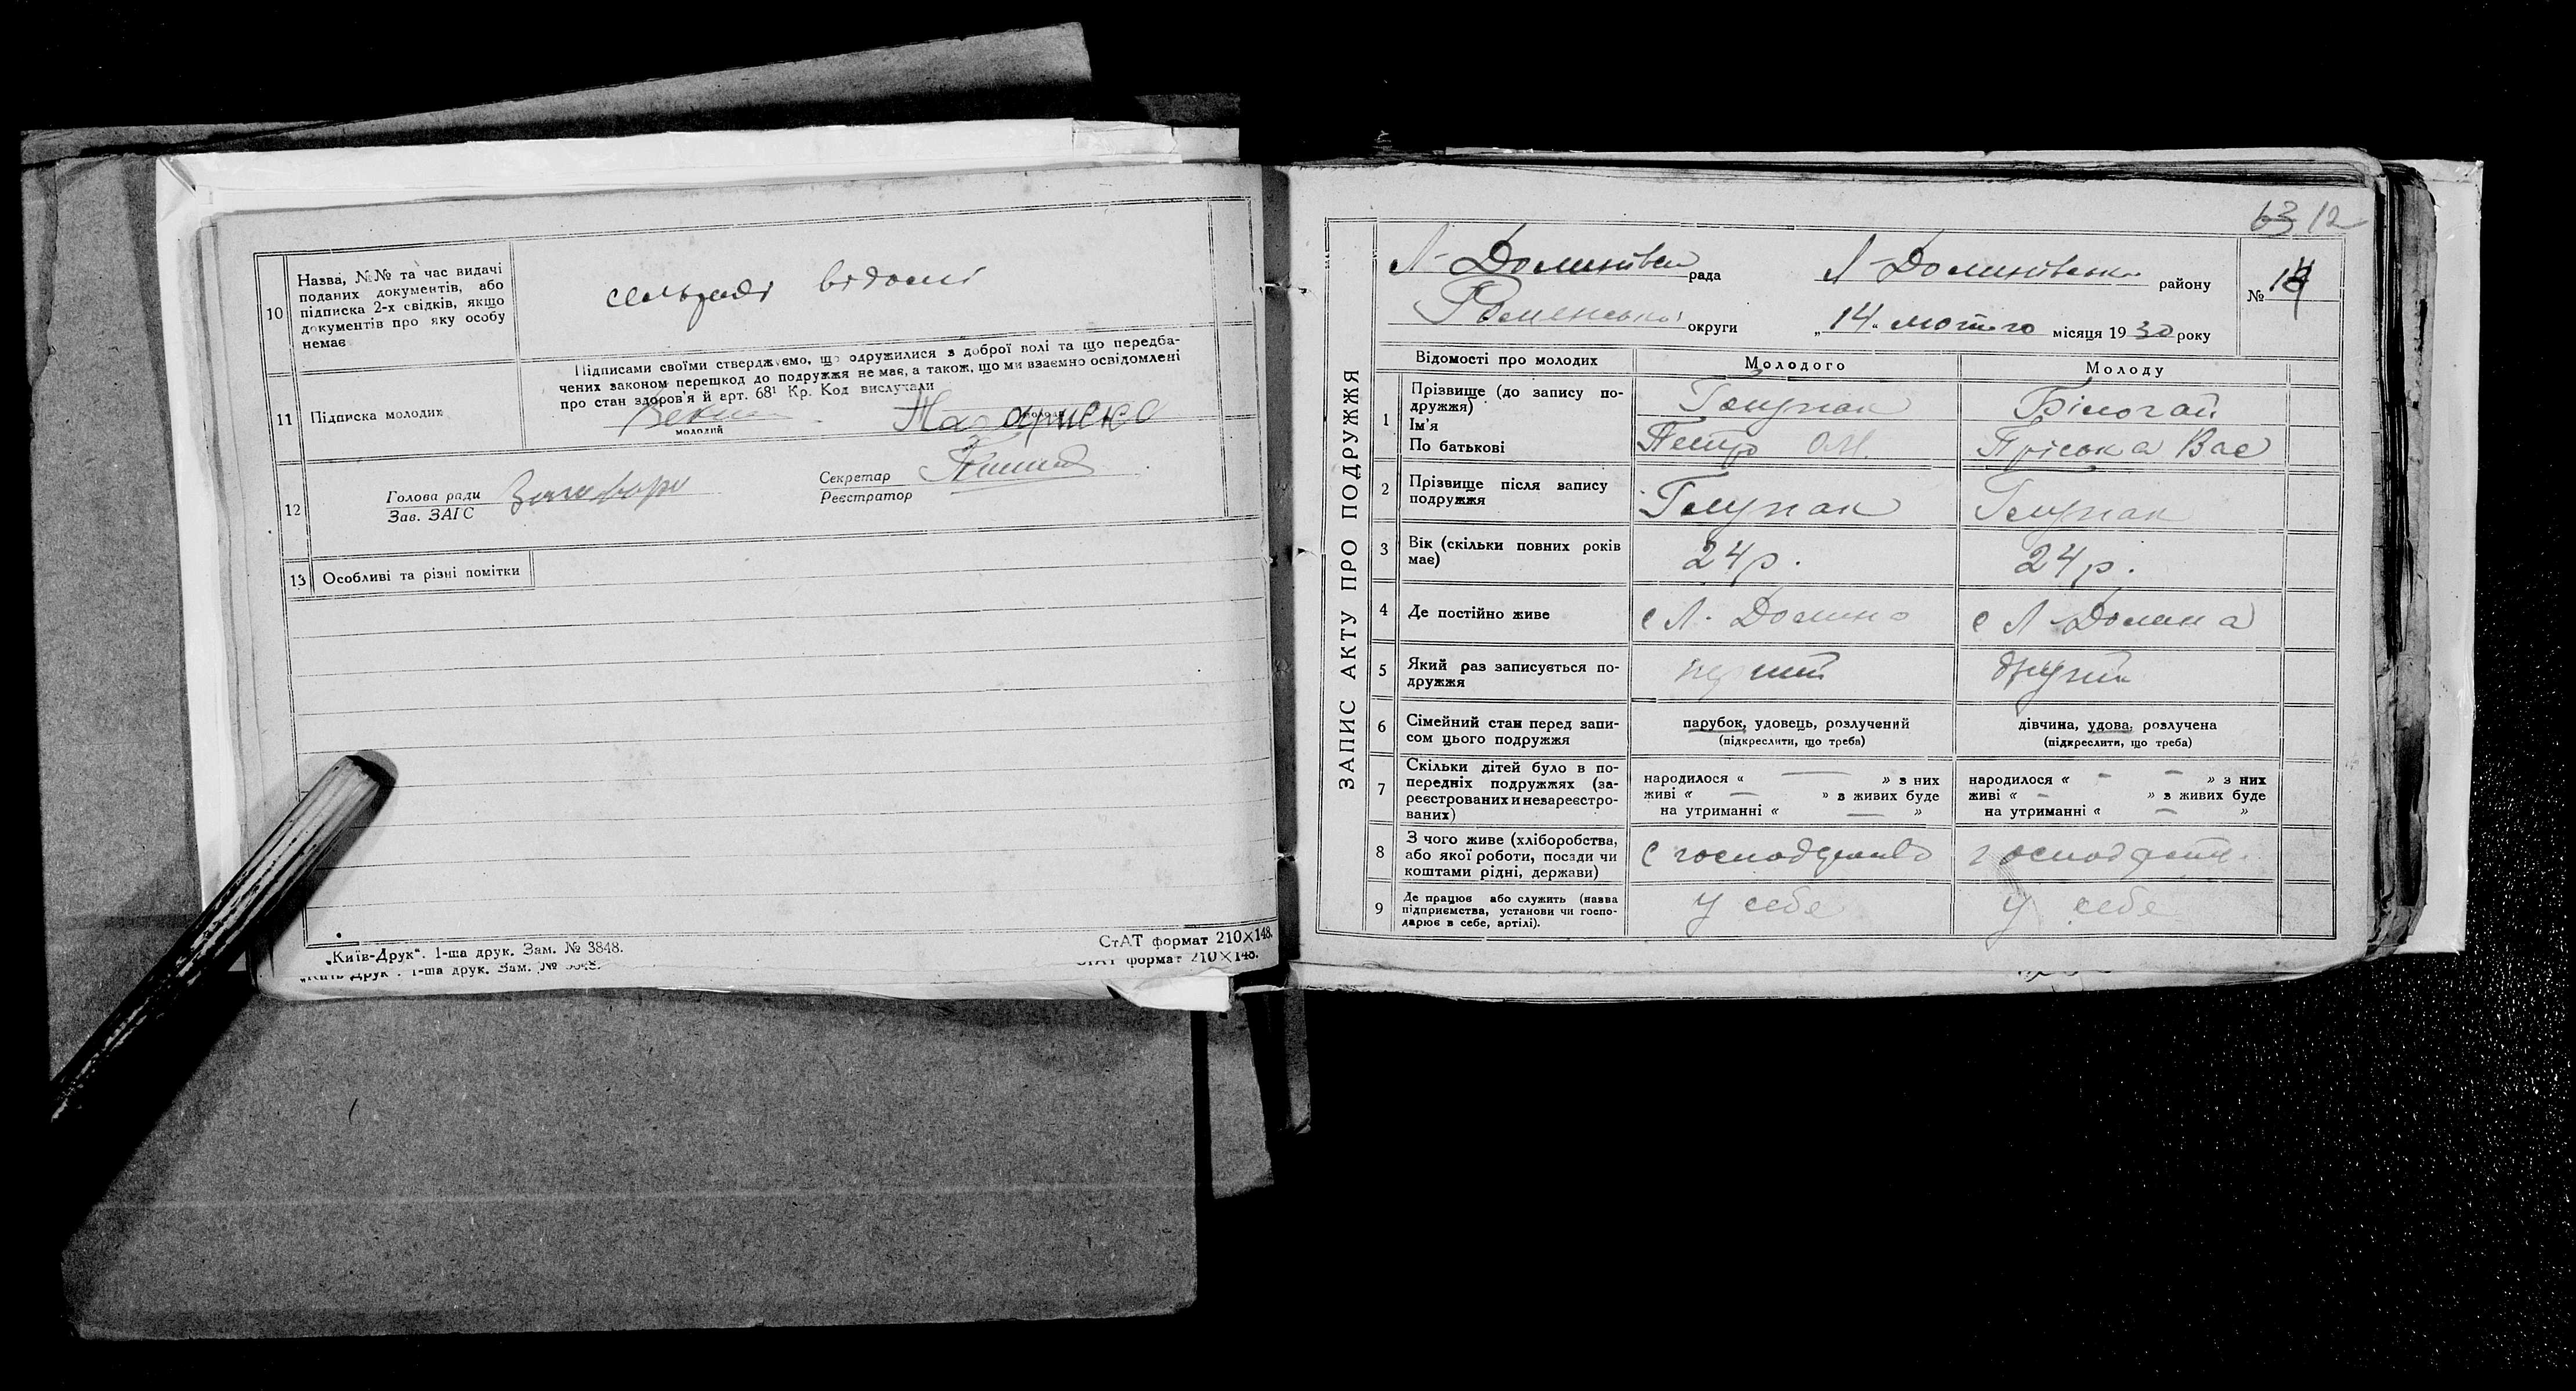 10
Назва, №№ та час видачі
поданих документів, або
підписка 2-х свідків, якщо
документів про яку особу
немає
сельраді відомі
11
Підписка молодих
Підписами своїми стверджуємо, що одружилися з доброї волі та що передба-
чених законом перешкод до подружжя не має, а також, що ми взаємно освідомлені
про стан здоров'я й арт. 68¹ Кр. Код вислухали
молодий
12
Голова ради
Зав. ЗАГС
Секретар
Реєстратор
13
Особливі та різні помітки
„Київ-Друк“. 1-ша друк. Зам. № 3848.
СтАТ формат 210×148.
„Київ-Друк“. 1-ша друк. Зам. № 3848.
СтАТ формат 210×148.
63 12
ЗАПИС АКТУ ПРО ПОДРУЖЖЯ
Л-Долинівська рада
Л-Долинівського району
№
Роменської округи
„14“ лютого місяця 1930 року
Відомості про молодих
Молодого
Молоду
1
Прізвище (до запису по-
дружжя)
Ім'я
По батькові
Петро
Білогай
Пріська Вас
2
Прізвище після запису
подружжя
3
Вік (скільки повних років
має)
24 р.
24 р.
4
Де постійно живе
с Л. Долина
с Л-Долина
5
Який раз записується по-
дружжя
перший
другий
6
Сімейний стан перед запи-
сом цього подружжя
парубок, удовець, розлучений
(підкреслити, що треба)
дівчина, удова, розлучена
(підкреслити, що треба)
7
Скільки дітей було в по-
передніх подружжях (за-
реєстрованих и незареєстро-
ваних)
народилося « — » з них
живі « — » з живих буде
на утриманні « — »
народилося « - - » з них
живі « — » з живих буде
на утриманні « — »
8
З чого живе (хліборобства,
або якої роботи, посади чи
коштами рідні, держави)
с господарства
господарств.
9
Де працює або служить (назва
підприємства, установи чи госпо-
дарює в себе, артілі).
у себе
у себе